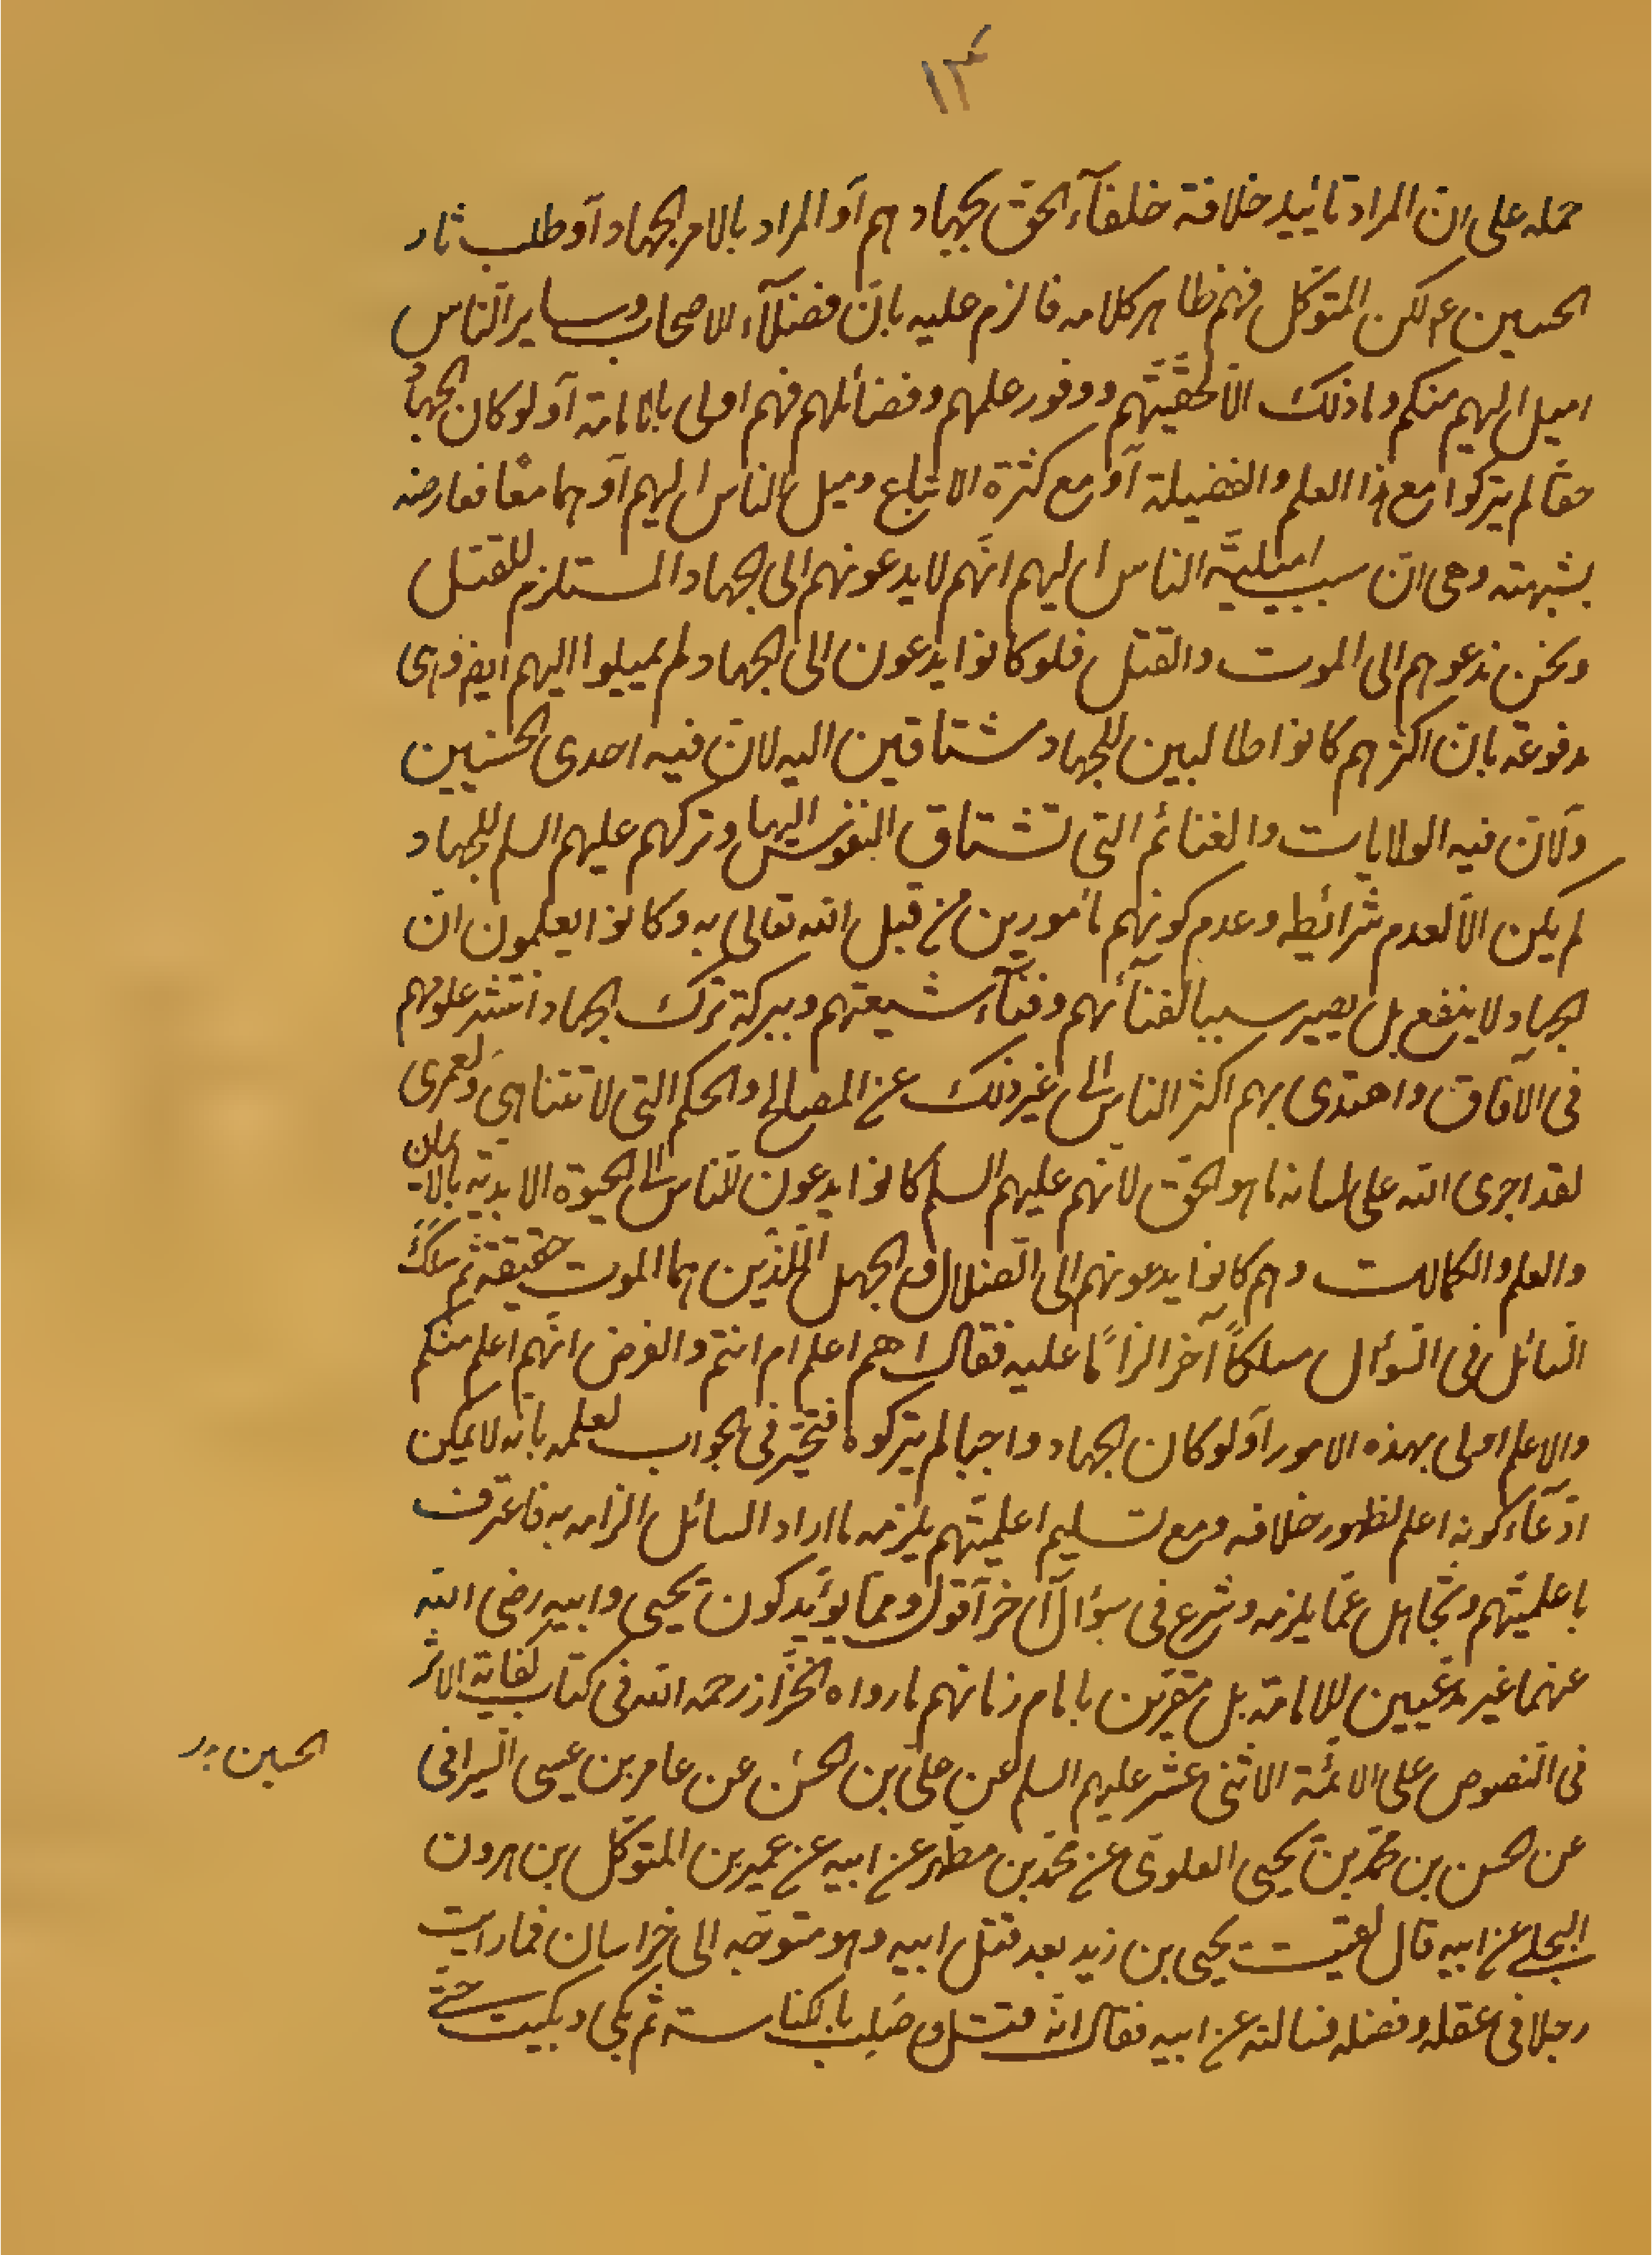 ١٣
حمله على ان المراد تائيد خلافة خلفآء الحق بجهادهم آو المراد بالامر الجهاد آو طلب ثار
الحسين ع م لكن المتوكّل فهم ظاهر كلامه فالزم عليه بانّ فضلآء الاصحاب وساير النّاس
اميل اليهم منكم وما ذلك الّا لاحقّيّتهم ووفور علمهم وفضائلهم فهم اولى بالامامة آو لو كان الجهاد
حقا لم يتركوا مع هذا العلم والفضيلة آو مع كثرة الاتباع وميل الناس اليهم آو هما معًا فعارضه
بشبهته وهى انّ سبب اميليّة الناس اليهم انّهم لا يدعونهم الى الجهاد المستلزم للقتل
ونحن ندعوهم الى الموت والقتل فلو كانوا يدعون الى الجهاد لم يميلوا اليهم ايضا وهى
مدفوعة بانّ اكثرهم كانوا طالبين للجهاد مشتاقين اليه لانّ فيه احدى الحسنيين
ولانّ فيه الولايات والغنائم التى تشتاق النفوس اليها وتركهم عليهم السلم للجهاد
لم يكن الّا لعدم شرائطه وعدم كونهم مأمورين من قبل الله تعالى به وكانوا يعلمون انّ
الجهاد لا ينفع بل يصير سببا لفنآئهم وفنآء شيعتهم وببركة ترك الجهاد انتشر علومهم
فى الآفاق واهتدى بهم اكثر الناس الى غير ذلك من المصالح والحكم التى لا تتناهى ولعمرى
لقد اجرى الله على لسانه ما هو الحق لانّهم عليهم السلم كانوا يدعون الناس الى الحيوة الابديّة بالايمان
والعلم والكمالات وهم كانوا يدعونهم الى الضلال والجهل اللّذين هما الموت حقيقة ثم سلك
السائل فى السّؤال مسلكًا آخر الزامًا عليه فقال اهم اعلم ام انتم والغرض انّهم اعلم منكم
والاعلم اولى بهذه الامور آو لو كان الجهاد واجبا لم يتركوه فتحيّر فى الجواب لعلمه بانّه لا يمكن
ادّعآء كونه اعلم لظهور خلافه ومع تسليم اعلميّتهم يلزمه ما اراد السائل الزامه به فاعترف
باعلميّتهم وتجاهل عمّا يلزمه وشرع فى سؤال آخر آقول وممّا يؤيّد كون يحيى وابيه رضى الله
عنهما غير مدّعيين للامامة بل مقرّين بامام زمانهم ما رواه الخزّاز رحمه الله فى كتاب كفاية الاثر
فى النصوص على الائمّة الاثنى عشر عليهم السلم عن على بن الحسن عن عامر بن عيسى السّيرافى
الحسين
عن الحسن بن محمّد بن يحيى العلوىّ عن محمّد بن مطهر عن ابيه عن عمير بن المتوكّل بن هرون
البجلى عن ابيه قال لقيت يحيى بن زيد بعد قتل ابيه وهو متوجّه الى خراسان فما رايت
رجلا فى عقله وفضله فسالته عن ابيه فقال انّه قتل وصلب بالكناسة ثم بكى وبكيت حتّى